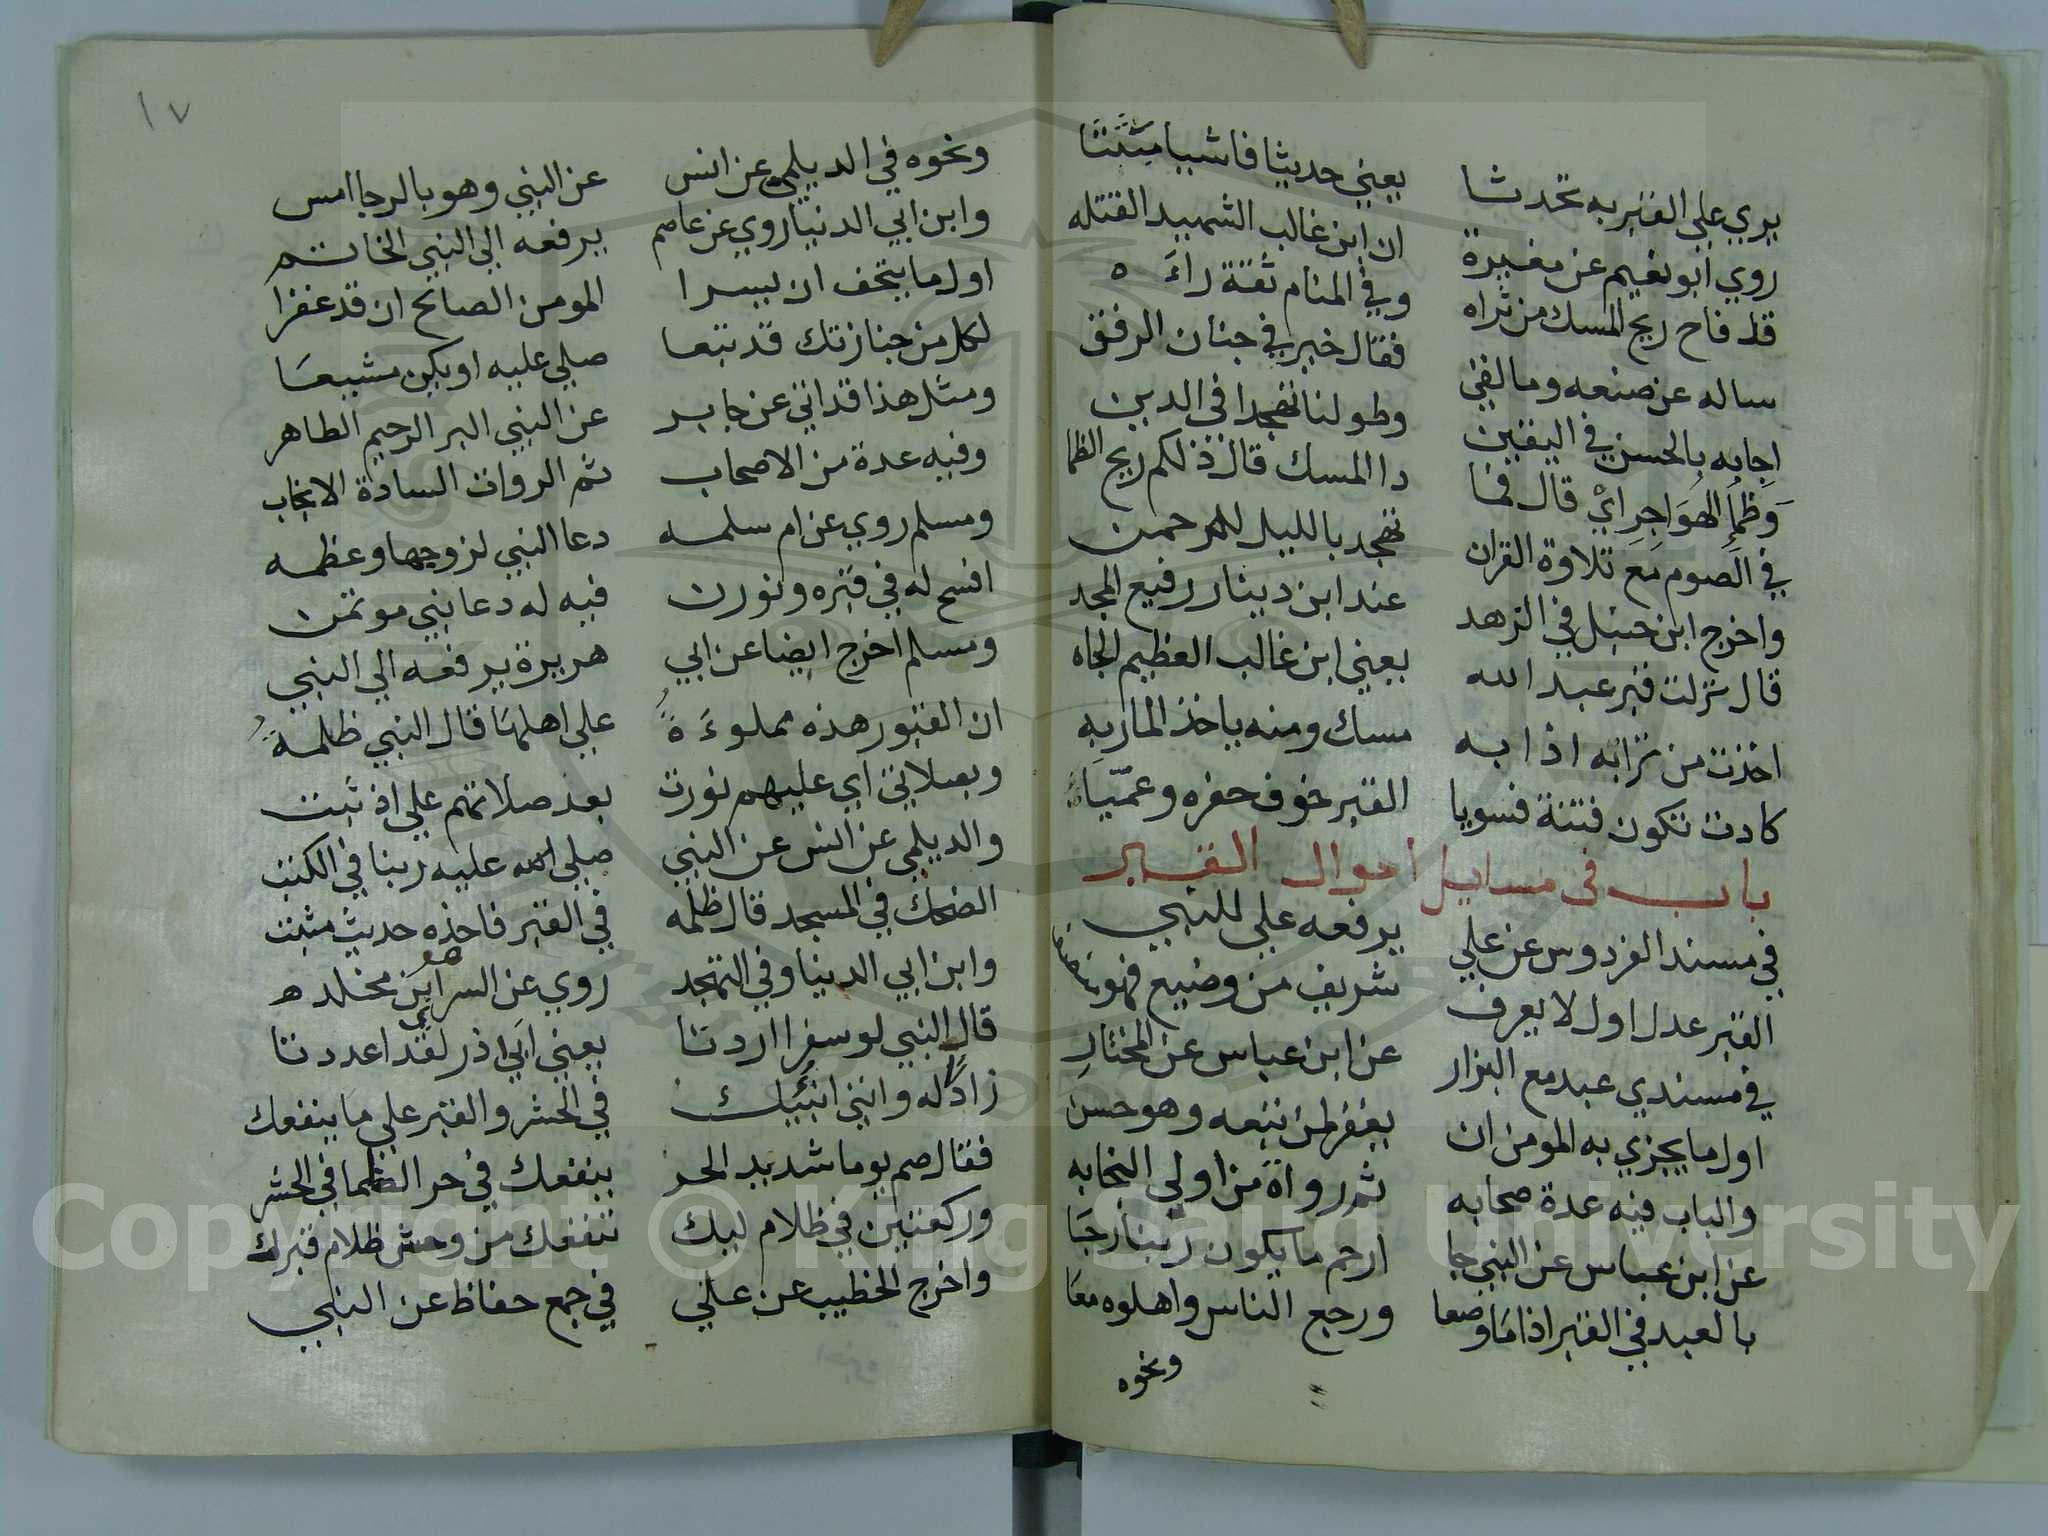 يري علي القبر به تحدثا يعني حديثا فاشيا مثبتا
روي ابو نعيم عن مغيرة ان ابن غالب الشهيد القتله
قد فاح ريح المسك من ثراه وفي المنام ثقة راءه
ساله عن صنعه وما لقي فقال خير في جنان الرفق
اجابه بالحسن في اليقين وطولنا تهجدا في الدين
وظمإ الهواجر اي قال فما دا المسك قال ذلكم ريح الظما
في الصوم مع تلاوة القران تهجد بالليل للرحمن
واخرج ابن حنبل في الزهد عند ابن دينار رفيع المجد
قال نزلت قبر عبد الله يعني ابن غالب العظيم الجاه
اخذت من ترابه اذا به مسك ومنه ياخذ الماربه
كادت تكون فتنة فسويا القبر خوف حفره وعميا
باب في مسايل احوال القبر
في مسند الفردوس عن علي يرفعه علي للنبي
القبر عدل اول لا يعرف شريف من وضيع فهو
في مسندي عبد مع البزار عن ابن عباس عن المختار
اول ما يجزي به المومن ان يغفر لمن تبعه وهو حسن
والباب فيه عدة صحابه ثم رواة من اولي النجابه
عن ابن عباس عن النبي جا ارحم ما يكون ربنا رجا
بالعبد في القبر اذا ما وضعا ورجع الناس واهلوه معا
ونحوه
١٧
ونحوه في الديلمي عن انس عن النبي وهو بالرجا امس
وابن ابي الدنيا روي عن عاصم يرفعه الي النبي الخاتم
اول ما يتحف ان يبسرا المومن الصالح ان قد غفرا
لكل من جنازتك قد تبعا صلي عليه او يكن مشيعا
ومثل هذا قد اتي عن جابر عن النبي البر الرحيم الطاهر
وفيه عدة من الاصحاب ثم الروات السادة الانجاب
ومسلم روي عن ام سلمه دعا النبي لزوجها وعظمه
افسح له في قبره ونورن فيه له دعا نبي موتمن
ومسلم اخرج ايضا عن ابي هريرة يرفعه الي النبي
ان القبور هذه مملوءة علي اهلها قال النبي ظلمة
وبصلاتي اي عليهم نورت بعد صلاتهم علي اذ ثبت
والديلمي عن انس عن النبي صلي الله عليه ربنا في الكتب
الضحك في المسجد قال ظلمه في القبر فاخذه حديث مثبت
وابن ابي الدنيا وفي التهجد روي عن السر ابن مخلد
قال النبي لو سفرا اردتا يعني ابي ذر لقد اعددتا
زادا له وانني انبيك في الحشر والقبر علي ما ينفعك
فقال صم يوما شديد الحر ينفعك في حر الظما في الحشر
وركعتين في ظلام ليك تنفعك من وحش ظلام قبرك
واخرج الخطيب عن علي في جمع حفاظ عن النبي
Copyright © King Saud University